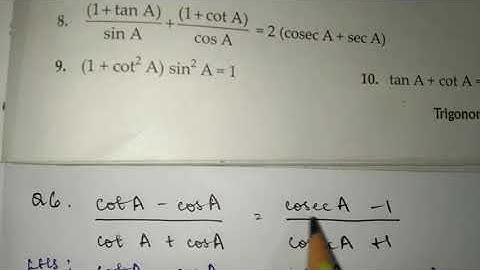 8. (1+tan A)/sin A + (1+cot A)/cos A = 2 (cosec A + sec A)
9. (1 + cot² A) sin² A = 1
10. tan A + cot A =
Trigonor
Q6. cot A - cos A / cot A + cos A = cosec A - 1 / cosec A + 1
LHS :